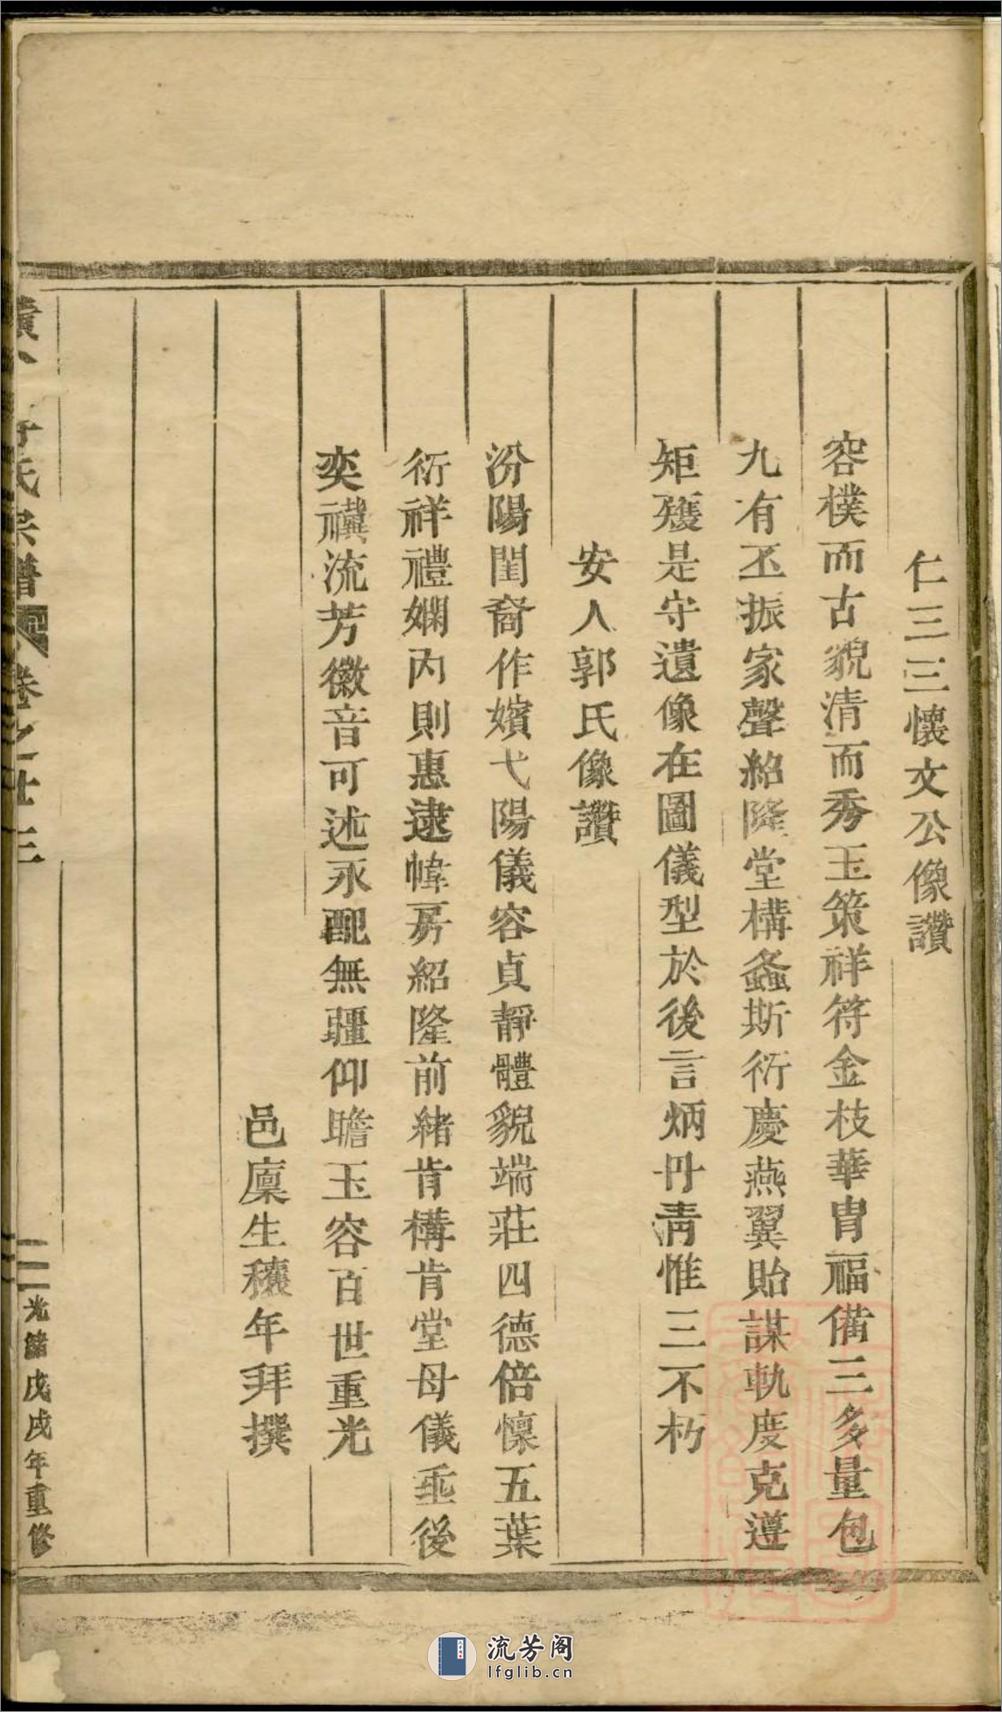 仁三三懷文公像讚
容樸而古貌清而秀玉策祥符金枝華胄福備三多量包
九有丕振家聲紹隆堂構螽斯衍慶燕翼貽謀軌度克遵
矩矱是守遺像在圖儀型於後言炳丹青惟三不朽
安人郭氏像讚
汾陽閨裔作嬪弋陽儀容貞靜體貌端莊四德倍懍五葉
衍祥禮嫻內則惠逮幃房紹隆前緒肯構肯堂母儀垂後
奕禩流芳徽音可述永配無疆仰瞻玉容百世重光
邑廩生穰年拜撰
氏宗譜 卷之廿三
二 光緒戊戌年重修
流芳阁
lfglib.cn